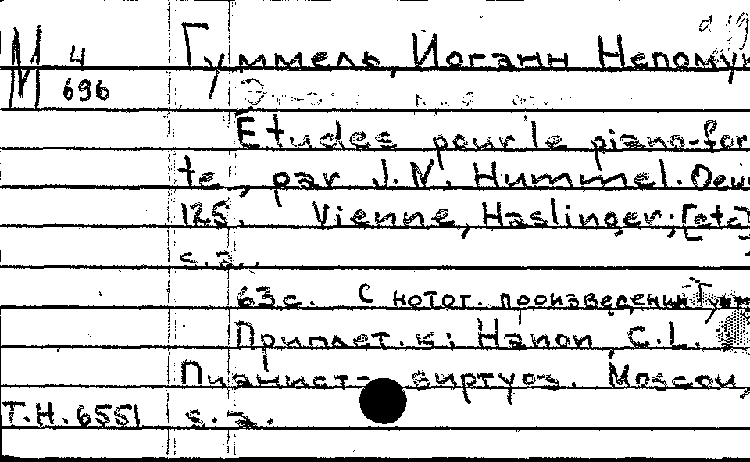 М 4 Гуммель, Иоганн Непомук
696
Etudes pour le piano-for
te, par J. N. Hummel. Oeuv
125. Vienne, Haslinger; [etc]
s.a.
63 с. С нотог. произведений Гумм
Приплет. к: Hanon, C.L.
Пианист-виртуоз. Moscou,
Т.Н.6551 s.a.